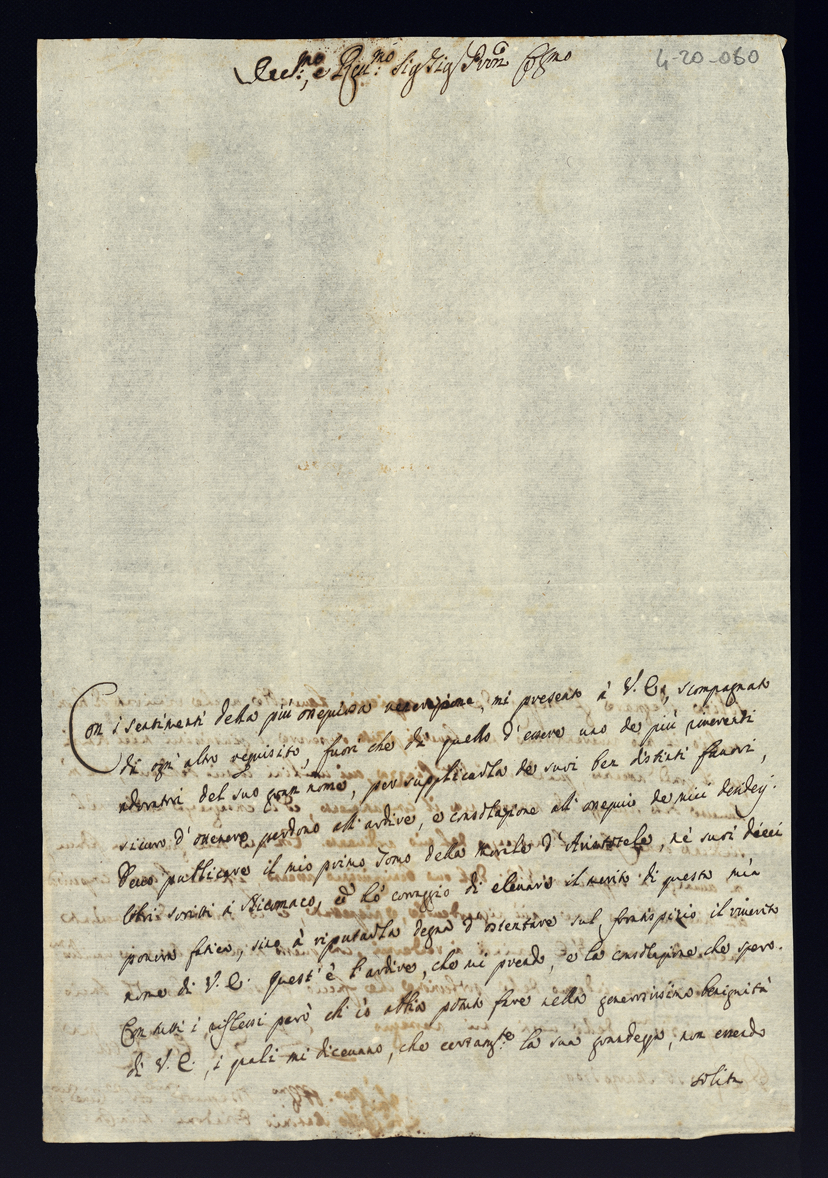 Ecc.mo, e Rev.mo Sig Sig Pron Col.mo
4-20-060
Con i sentimenti della più ossequiosa venerazione, mi presento à V. E., scompagnato
di ogn' altro requisito, fuori che di quello d' essere uno de più riverenti
adoratori del suo gran nome, per supplicarla de suoi ben distinti favori,
sicuro d' ottenere perdono all' ardire, e consolazione all' ossequio de miei desiderj.
Devo publicare il mio primo Tomo della Morale d' Aristotele, nè suoi dieci
libri scritti à Nicomaco, ed hò coraggio di elevare il merito di questa mia
povera fatica, sino à riputarla degna d' ostentare sul frontispizio il riverito
nome di V. E. Quest' è l' ardire, che mi prendo, e la consolazione, che spero.
Con tutti i riflessi però ch' io abbia potuto fare nella generosissima benignità
di V. E., i quali mi dicevano, che certam.te la sua grandezza, non essendo
solita